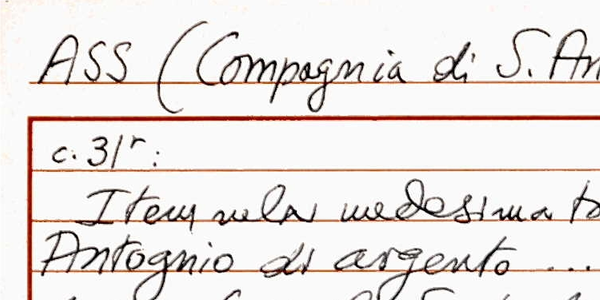 ASS (Compagnia di S. An
c. 31r:
Item nela medesima ta
Antognio di argento ...